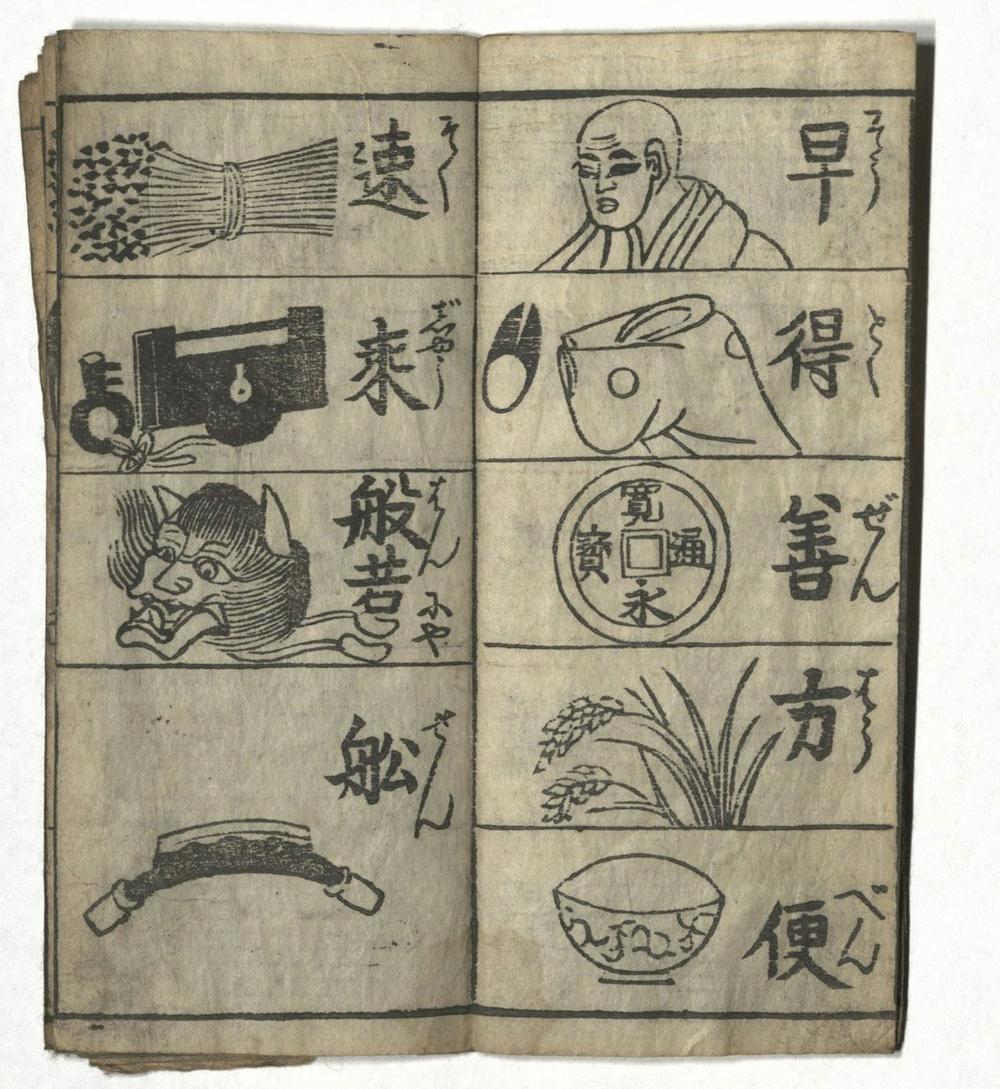 早 そう
得 とく
善 ぜん
寛永通寳
方 はう
便 べん
速 そく
乗 じやう
般若 はんにや
舩 せん